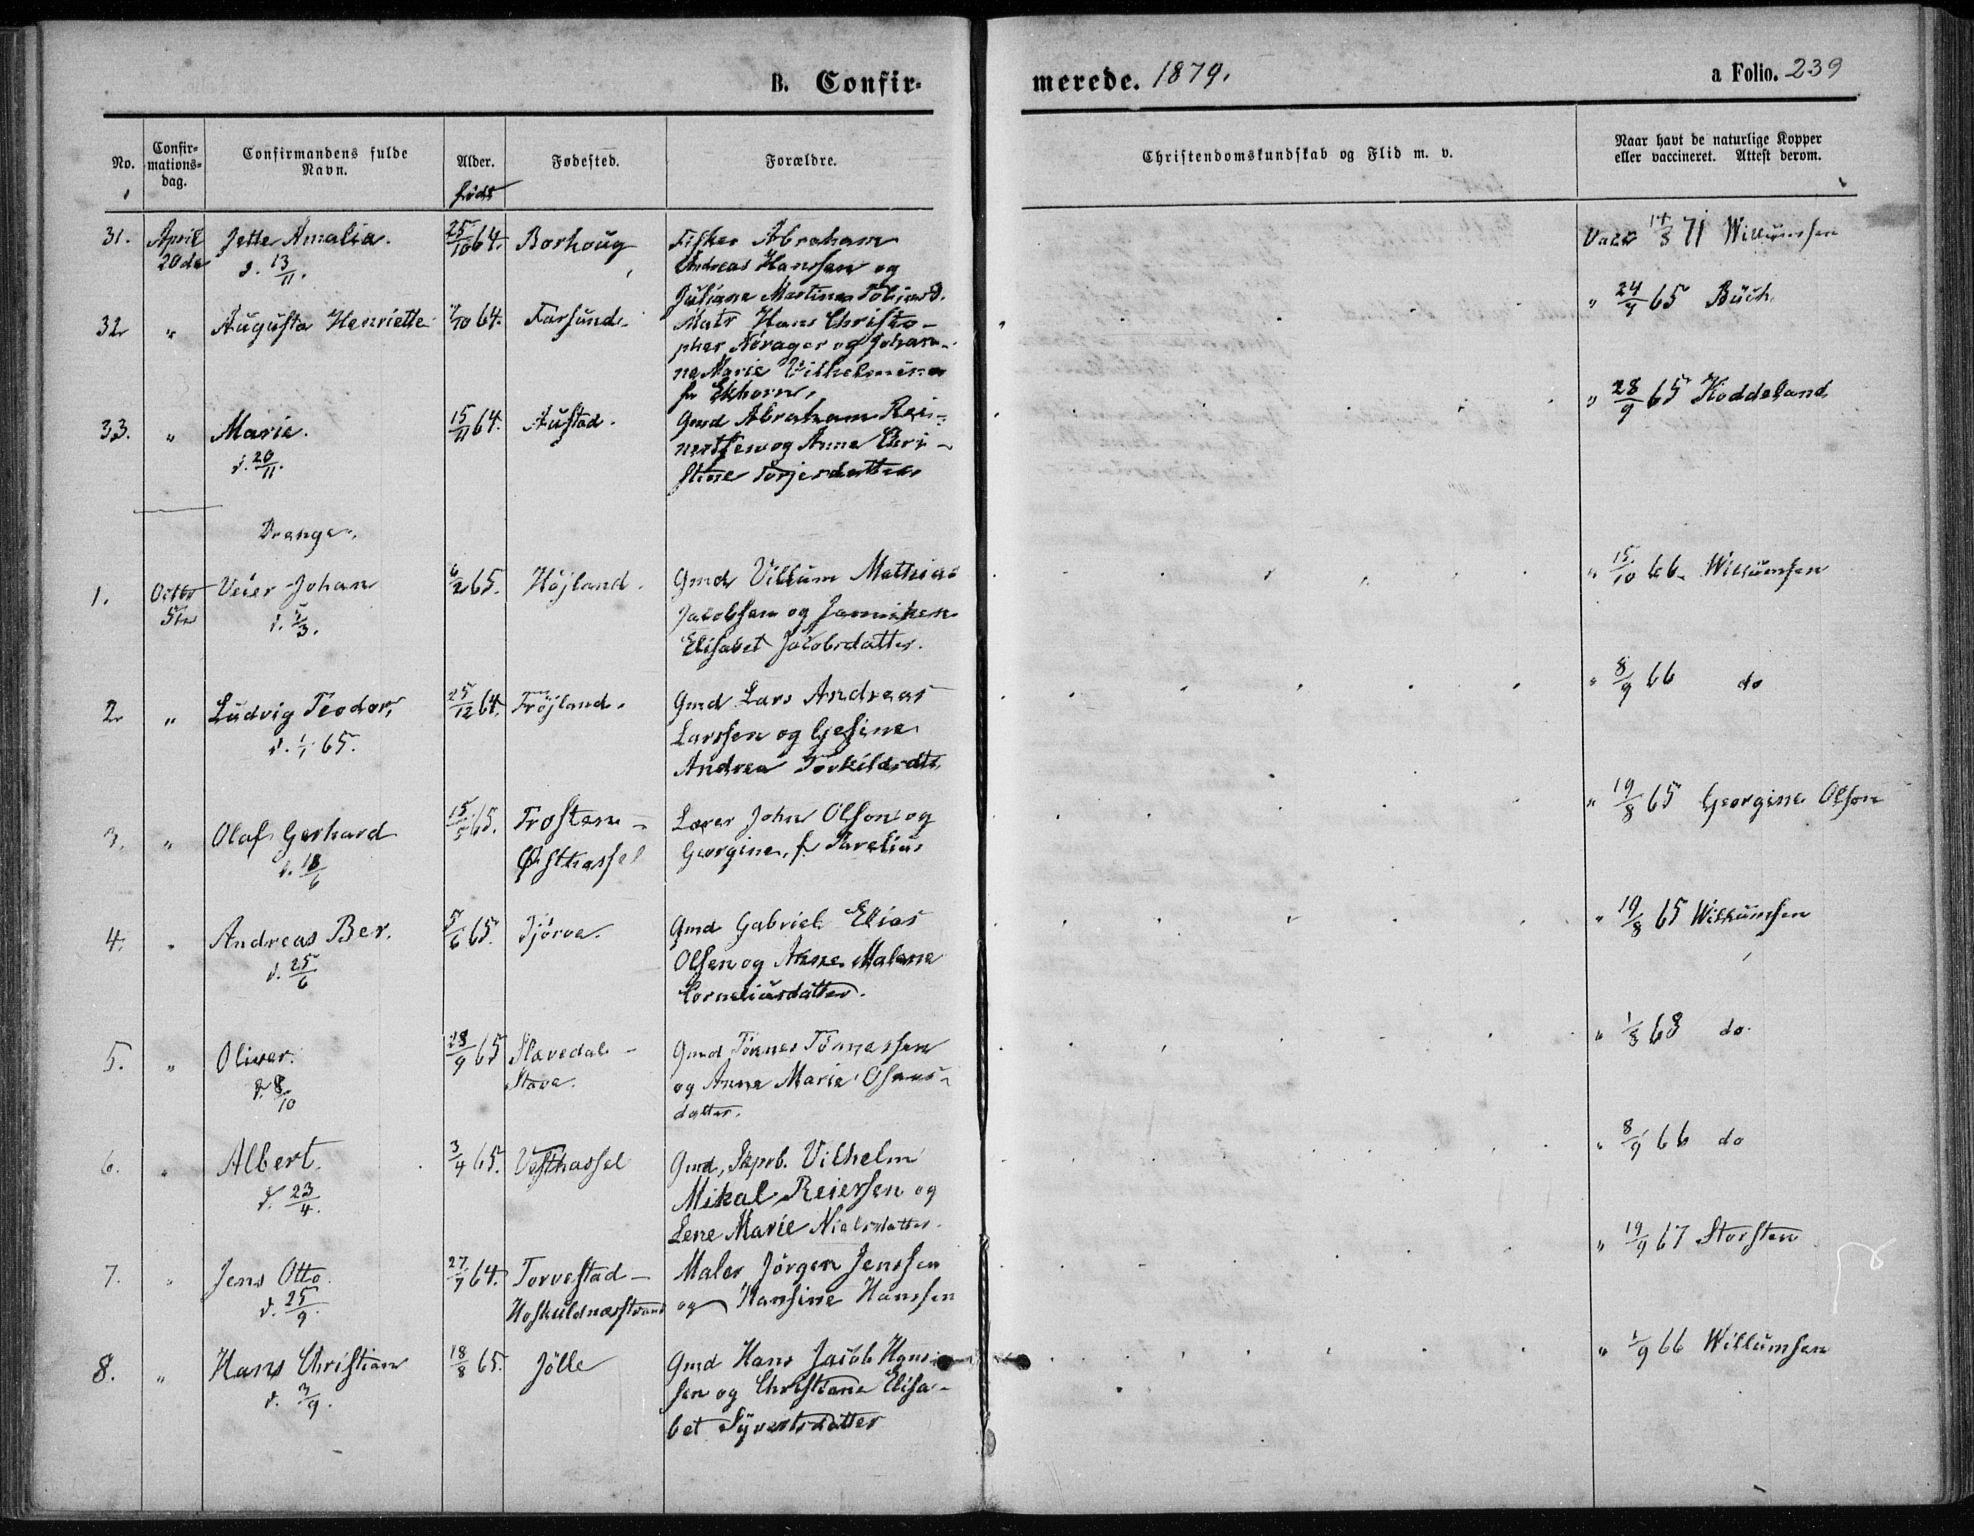 B. Confirmerede. 1879.
a Folio. 239
No.
Confirmationsdag.
Confirmandens fulde Navn.
Alder.
født
Fødested.
Forældre.
Christendomskundskab og Flid m. v.
Naar havt de naturlige Kopper eller vaccineret. Attest derom.
31. April 20de Jette Amalia. 25/10 64. Borhoug Fisker Abraham Vacc 14/8 71 Willumsen
d. 13/11. Andreas Hanssen og
Juliane Martine Tobiasd.
32 " Augusta Henriette 64. Farsund. Matr Hans Christo- " 65 Buch
pher Nørager og Johan-
ne Marie Vilhelmine
f. Ekhorn,
33. " Marie. 15/11 64. Austad. Gmd Abraham Rei- " 28/9 65 Hoddeland
d. 20/11. nertsen og Anne Chri-
stine Torjesdatter
Vrange.
1. Octbr 5te Veier Johan 65. Højland. Gmd Villum Mathias " 15/10 66. Willumsen
Jacobsen og Janniken
Elisabet Jacobsdatter.
2 " Ludvig Teodor, 25/12 64. Frøjland. Gmd Lars Andreas " 8/9 66 do
d. 1/1 65. Larssen og Gesine
Andrea Torkildsdtr.
3. " Olaf Gerhard 15/5 65. Trosten- Lærer John Olson og " 19/8 65 Georgine Olson
d. 18/6 Østhassel Georgine, f.
4. " Andreas Ber. 5/6 65. Tjørve. Gmd Gabriel Elias " 19/8 65 Willumsen
d. 25/6 Olsen og Anne Malene
Corneliusdatter.
5. " Oliver. 28/9 65 Slevedal- Gmd Tønnes Tønnessen " 1/8 68 do.
d. 8/10 Stave. og Anne Marie
datter.
6. " Albert. 3/4 65. Vesthassel Gmd, Skprb. Vilhelm " 8/9 66 do
d. 23/4. Mikal Reiersen og
Lene Marie Nielsdatter.
7. " Jens Otto. 27/7 64. Torvestad- Maler Jørgen Jenssen " 19/9 67 Storsten
d. 25/9. Hoskuldnæsstrand og Hansine Hanssen
8. " Hans Christian 18/8 65. Jølle Gmd Hans Jacob Hans- " 1/9 66 Willumsen
d. 3/9. sen og Christiane Elisa-
bet Syvertsdatter